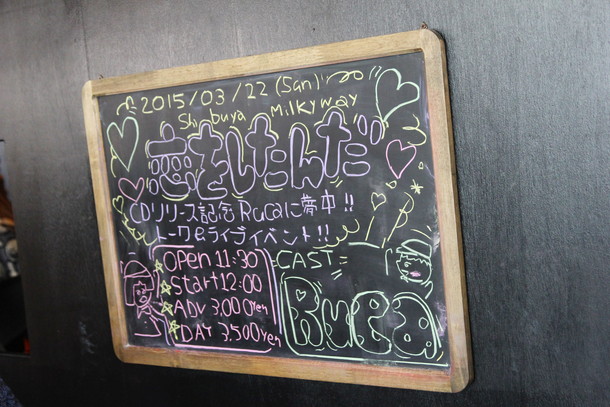 2015/03/22 (Sun)
Shibuya Milkyway
恋をしたんだ
CDリリース記念 Rucaに夢中!!
トーク&ライブイベント!!
Open 11:30
Start 12:00
ADV 3,000yen
DAY 3,500yen
CAST=
Ruca